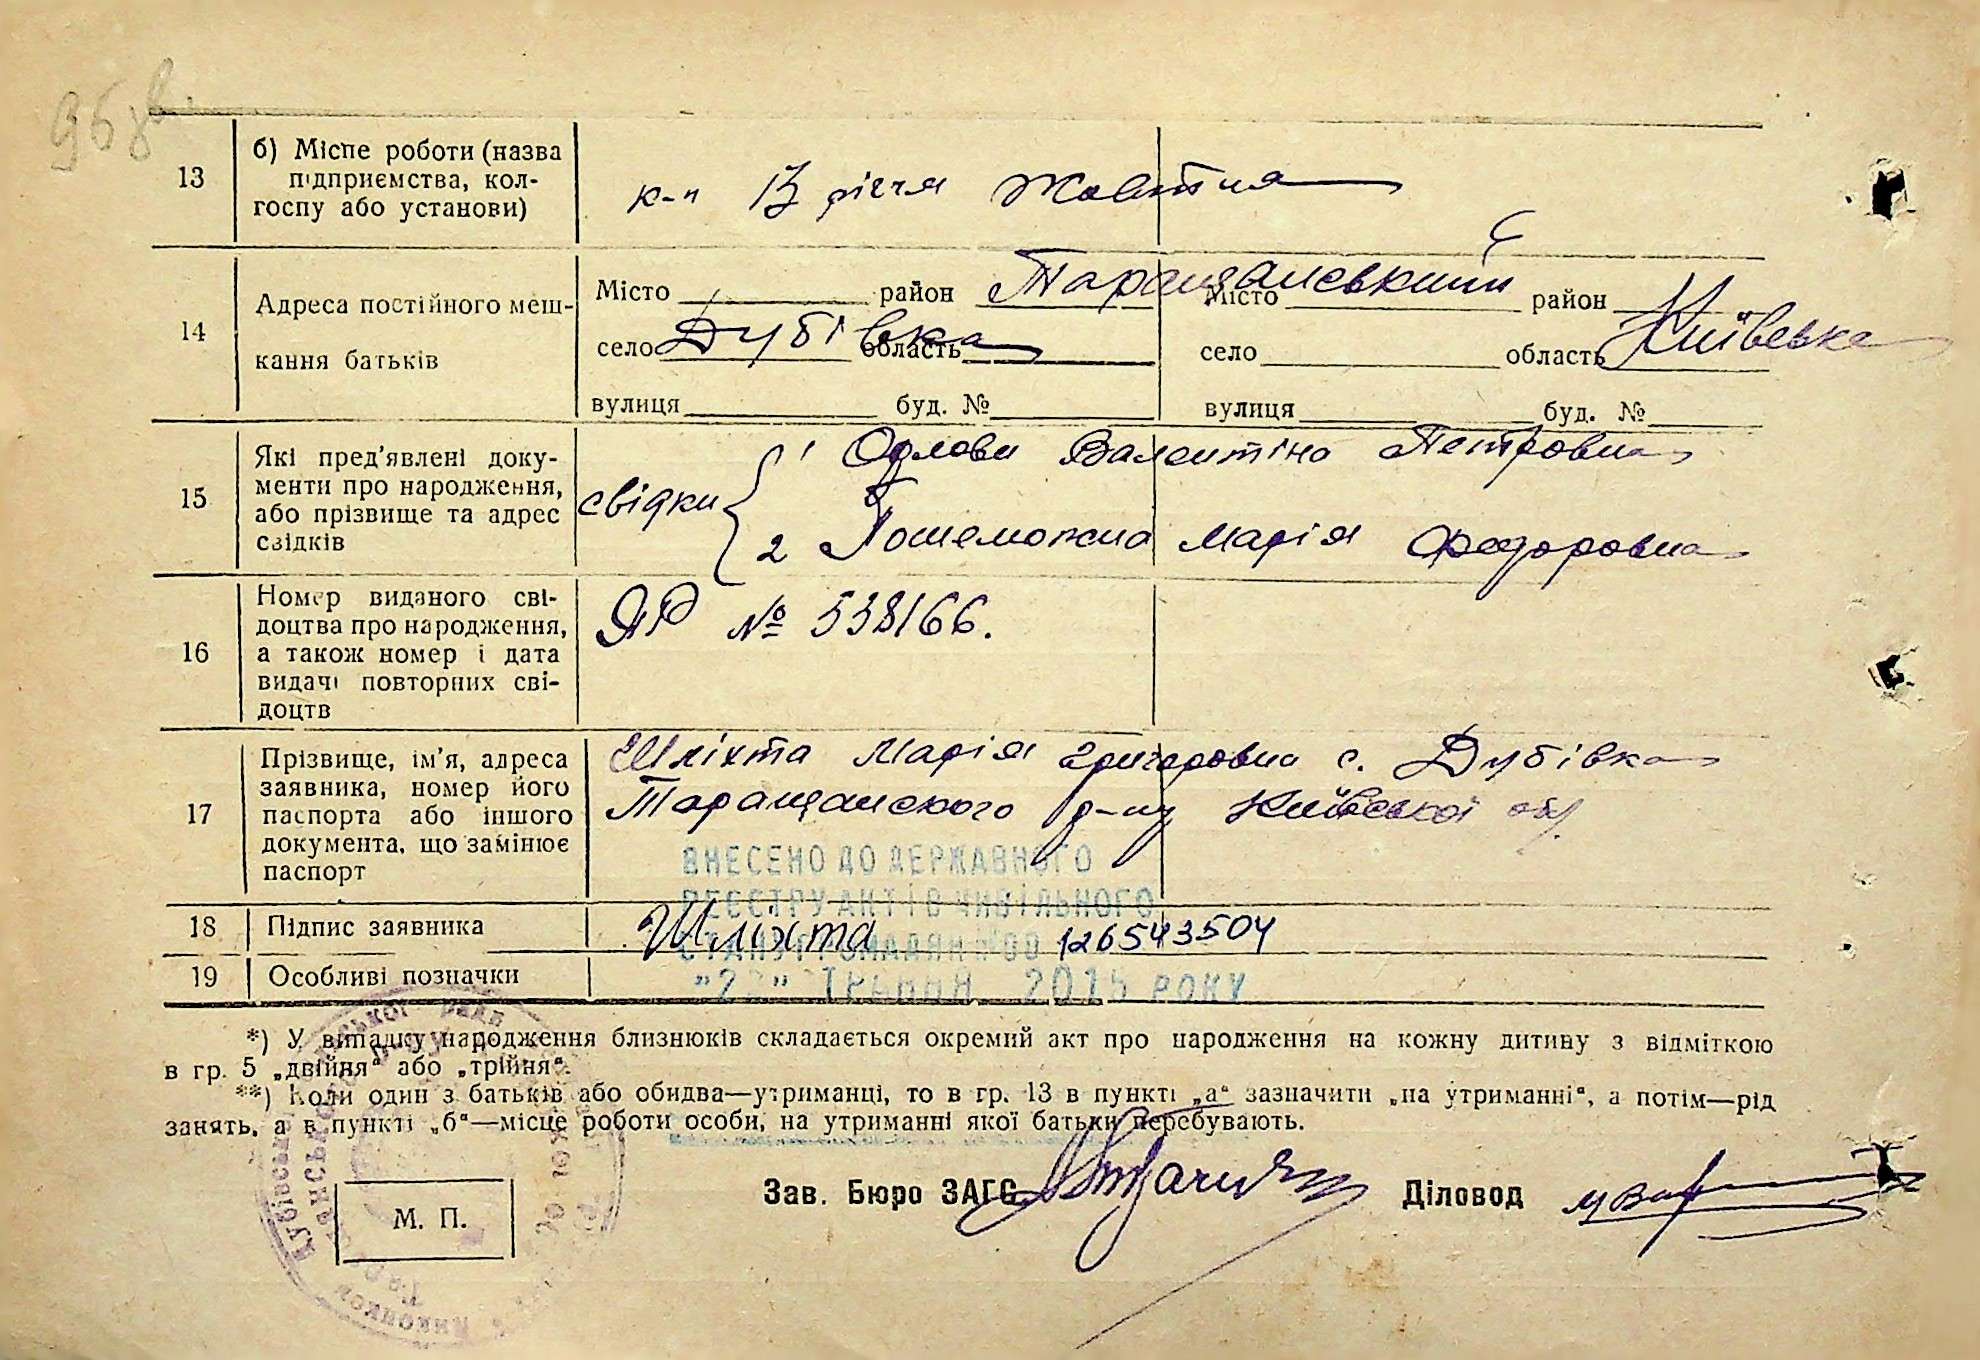 13 б) Місце роботи (назва підприємства, колгоспу або установи) к-п 13 річчя Жовтня
14 Адреса постійного мешкання батьків
Місто район Таращанський Місто район
село Дубівка область село область Київська
вулиця буд. № вулиця буд. №
15 Які пред'явлені документи про народження, або прізвище та адрес свідків
свідки 1 Орлова Валентіна Петровна
2 Пошеможна Марія Федоровна
16 Номер виданого свідоцтва про народження, а також номер і дата видачі повторних свідоцтв
ЯР № 538166.
17 Прізвище, ім'я, адреса заявника, номер його паспорта або іншого документа, що замінює паспорт
Шліхта Марія Григоровна с. Дубівка
Таращанского р-ну Київської обл.
ВНЕСЕНО ДО ДЕРЖАВНОГО
РЕЄСТРУ АКТІВ ЦИВІЛЬНОГО
18 Підпис заявника Шліхта
СТАНУ ГРОМАДЯН №00 126543504
19 Особливі позначки
ТРАВНЯ 2015 РОКУ
*) У випадку народження близнюків складається окремий акт про народження на кожну дитину з відміткою
в гр. 5 „двійня“ або „трійня“.
**) Коли один з батьків або обидва—утриманці, то в гр. 13 в пункті „а“ зазначити „на утриманні“, а потім—рід
занять, а в пункті „б“—місце роботи особи, на утриманні якої батьки перебувають.
Зав. Бюро ЗАГС Діловод
М. П.